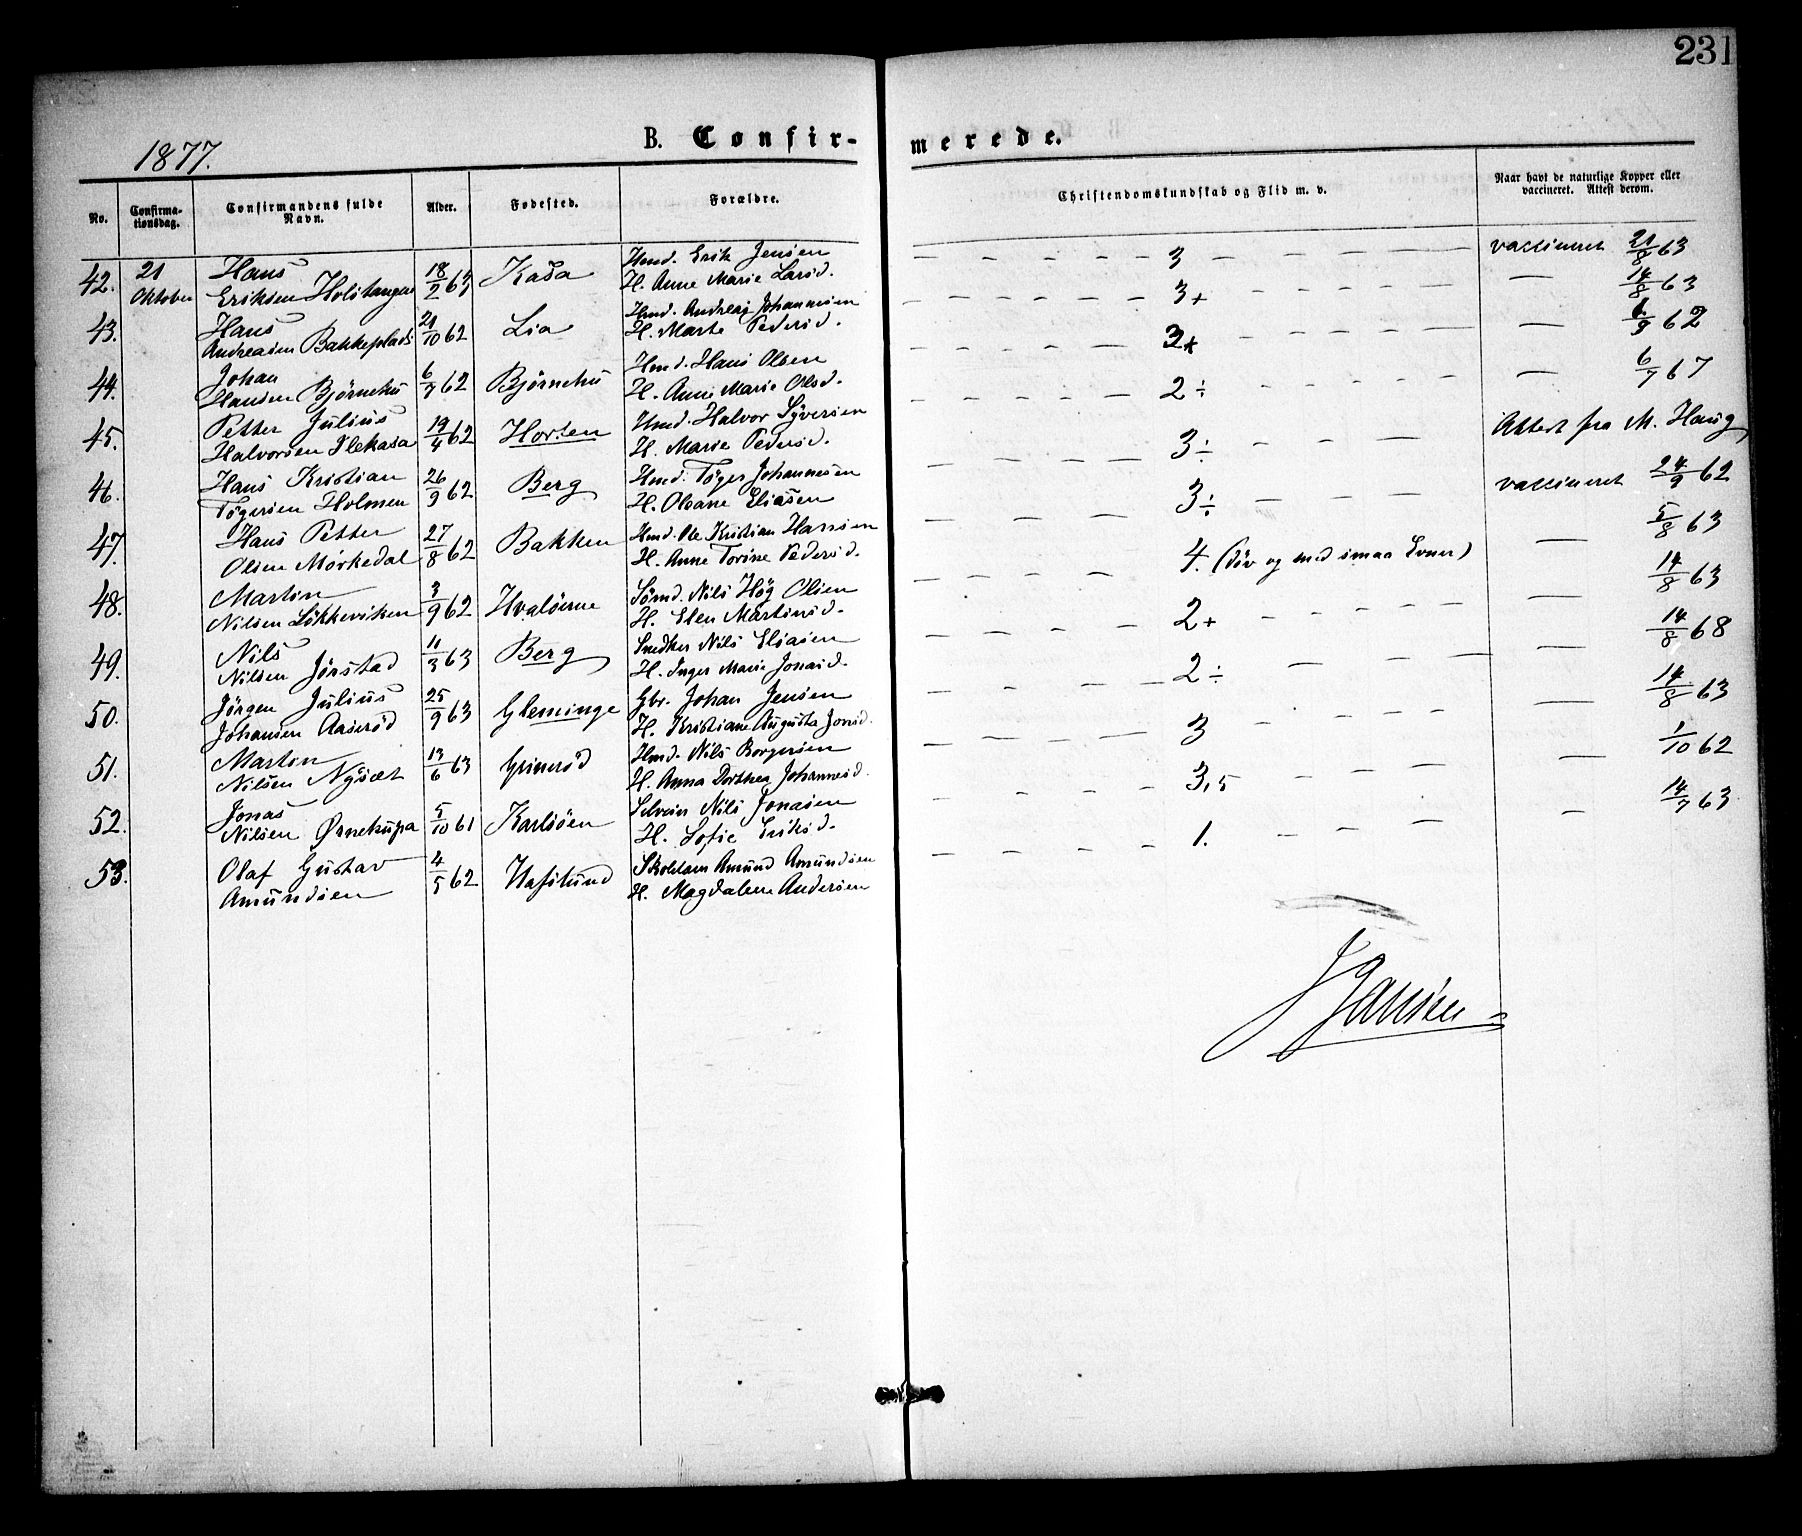 231
1877.
B. Confir-
merede.
No.
Confirma-
tionsdag.
Confirmandens fulde
Navn.
Alder.
Fødested.
Forældre.
Christendomskundskab og Flid m. v.
Naar havt de naturlige Kopper eller
vaccineret. Attest derom.
42. 21 Hans 18/2 63 Kasa Hmd. Erik Jensen — 3 — vaccineret 21/8 63
Oktober Eriksen Holstangen H. Anne Marie Larsd.
43. Hans 21/10 62 Lia Hmd. Andreas Johannesen — 3+ — 14/8 63
Andreasen Bakkeplads H. Marte Pedersd.
44. Johan 6/7 62 Bjørnehu Hmd. Hans Olsen — 2+ — 6/9 62
Hansen Bjørnehu H. Anne Marie Olsd.
45. Petter Julius 19/4 62 Horten Hmd. Halvor Syversen — 2÷ — 6/7 67
Halvorsen Flekasa H. Marie Pedersd.
46. Hans Kristian 26/9 62 Berg Hmd. Töger Johannesen — 3÷ — Attest fra M. Haug
Tögersen Holmen H. Oleane Eliasen
47. Hans Petter 27/8 62 Bakken Hmd. Ole Kristian Hansen — 3÷ — vaccineret 24/9 62
Olsen Mørkedal H. Anne Torine Pedersd.
48. Martin 3/9 62 Hvalöerne Sömd. Nils Hög Olsen — 4. (döv og med smaa Evner) — 5/8 63
Nilsen Lökkeviken H. Elen Martinsd.
49. Nils 11/3 63 Berg Snedker Nils Eliasen — 2+ — 14/8 63
Nilsen Jørstad H. Inger Marie Jonasd.
50. Jörgen Julius 25/9 63 Gleminge Gbr. Johan Jensen — 2÷ — 14/8 68
Johansen Aaseröd H. Kristiane Augusta Jonsd.
51. Martin 13/6 63 Grimsröd Hmd. Nils Borgersen — 3 — 14/8 63
Nilsen Nysæt H. Anna Dorthea Johannesd.
52. Jonas 5/10 61 Karlsöen Selveier Nils Jonasen — 3,5 — 1/10 62
Nilsen Ørnekupa H. Sofie Eriksd.
53. Olaf Gustav 4/5 62 Hafslund Skoleholder Amund Amundsen — 1. — 14/7 63
Amundsen H. Magdalene Andersen
J Jansen